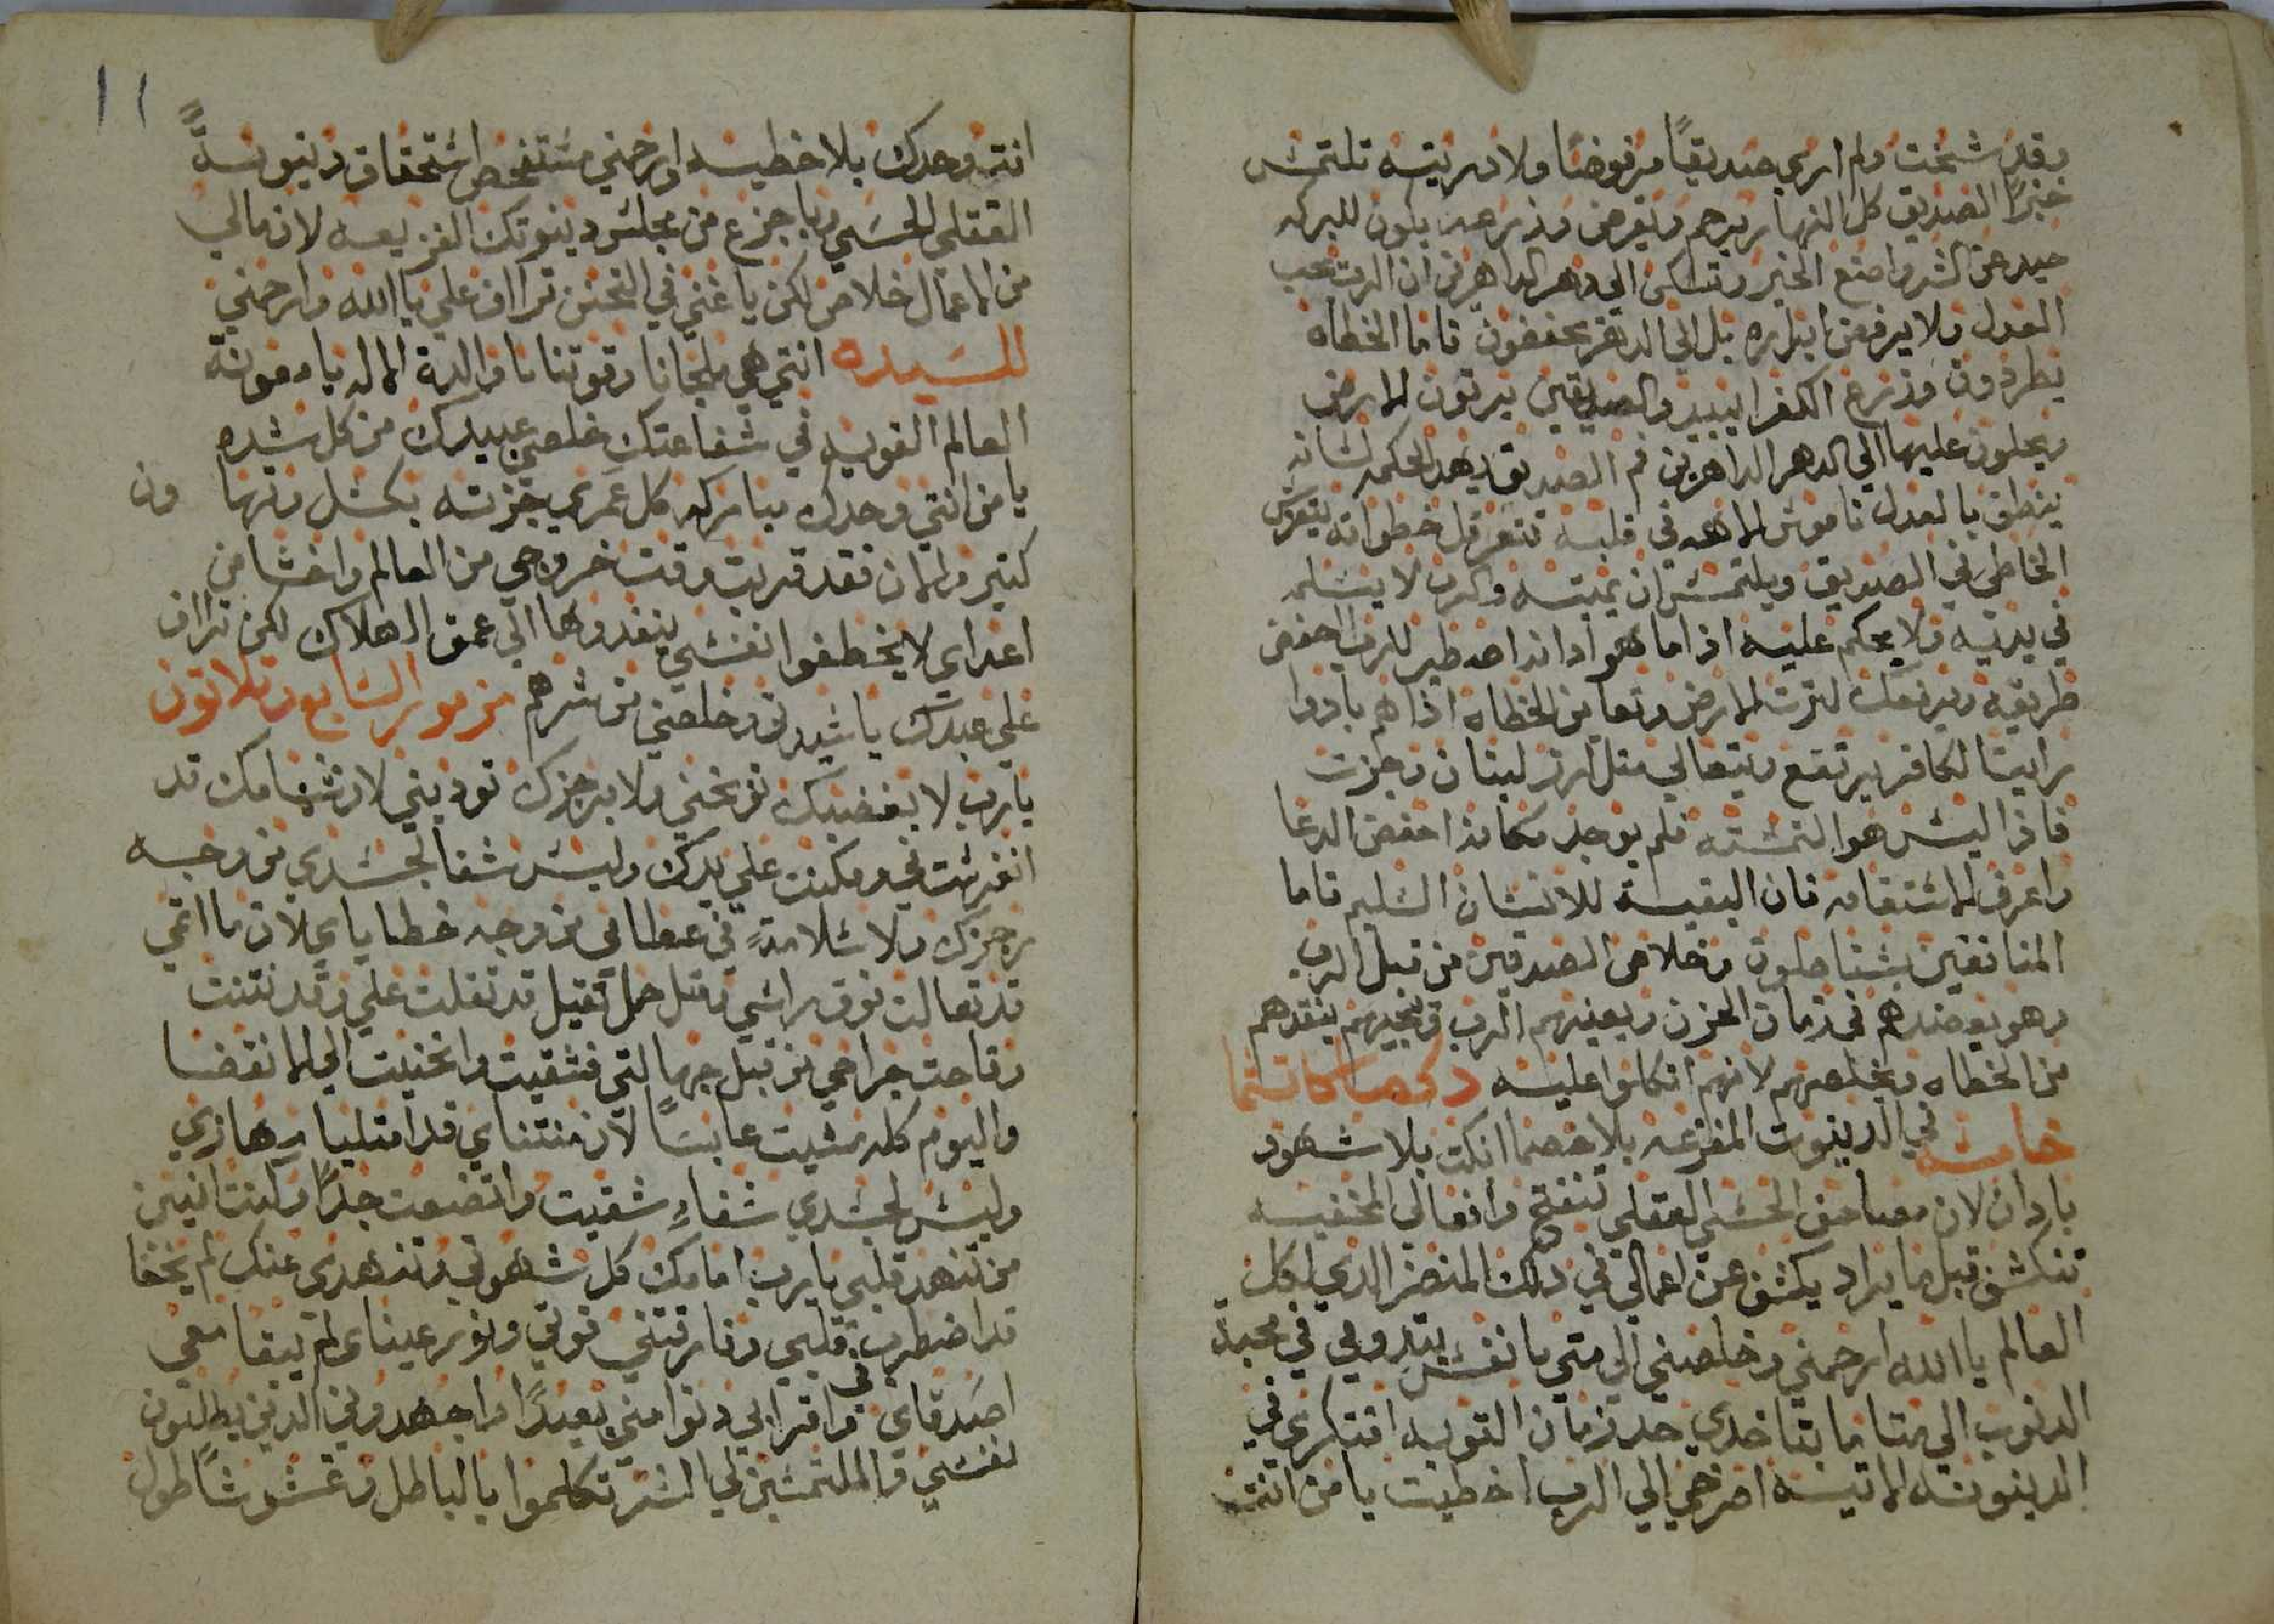 وقد شخت ولم ارى صديقًا مرفوضًا ولا دريته تلتمس
خبزًا الصديق كل النهار يرحم ويقرض وذرعه يكون للبركه
حيد عن الشر واصنع الخير وتسكن الي دهر الداهرين ان الرب يحب
العدل ولا يرفض ابراره بل الي الدهر يحفضون فاما الخطاه
يطردون وذرع الكفرا يبيد والصديقين يرتون الارض
ويحلون عليها الي دهر الداهرين فم الصديق يهد الحكمه لسانه
ينطق بالعدل ناموس الاهه في قلبه تتعرقل خطواته يتفرس
الخاطي في الصديق ويلتمس ان يميته والرب لا يسلمه
في يديه ولا يحكم عليه اذا ما هو ادانه اصطبر للرب احفض
طريقه ويرفعك لترت الارض وتعاين الخطاه اذا هم بادوا
رايت الكافر يرتفع ويتعالي متل ارز لبنان وجزت
فاذا ليس هو التمسته فلم يوجد مكانه احفض الدعا
واعرف الاستقامه فان البقية للانسان السليم فاما
المنافقين يستاصلون وخلاص الصدقين من قبل الرب
وهو يعضدهم في زمان الحزن ويعينهم الرب وينجيهم ينقدهم
من الخطاه ويخلصهم لانهم اتكلوا عليه دكصا كاتسما
خامسه في الدينوت المفزعه بلا خصما انكت بلا شهود
بادان لان مصاحف الحسي العقلي تنفتح وافعالي المخفيه
تنكشف قبل ما يراد يكشف عن اعمالي في دلك المنضر الدي لكل
العالم يا الله ارحمني وخلصني الي متي يا نفس يتدومي في محبة
الدنوب الي متا ما بتاخدي حد زمان التوبه افتكري في
الدينونه الاتيه اصرخي الي الرب اخطيت يا من انته
١١
انته وحدك بلا خطيه ارحمني مستفحص استحقاق دنيونةً
العقلي الحسي ويا جزع من مجلس دينوتك الفزيعه لان مالي
من الاعمال خلاص لكن يا غني في التحنن تراف علي يا الله وارحمني
للسيده انتي هي ملجانا وقوتنا يا والدة الاله يا معونة
العالم القويه في شفاعتك خلصي عبيدك من كل شده
يا من انتي وحدك مباركه كل عمري جزته بكسل وتها ون
كتير والان فقد قربت وقت خروجي من العالم واخشا من
اعداي لا يخطفوا نفسي ينفدوها الي عمق الهلاك لكن تراف
علي عبدك يا سيدتي وخلصني من شرهم مزمور السابع وتلاتون
يا رب لا بغضبك توبخني ولا برجزك تودبني لان سهامك قد
انغرست في ومكنت علي يدك وليس شفا لجسدي من وجه
رجزك ولا سلامةٍ في عظامي من وجه خطاياي لان ما اتمي
قد تعالت فوق راسي ومتل حمل تقيل قد تقلت علي وقد نتنت
وقاحت جراحي من قبل جهالتي فشقيت وانحنيت الي الانقضا
واليوم كله مشيت عابسًا لان منتناي قد امتليا مهازي
وليس لجسدي شفاءٍ شقيت واتضعت جدًا وكنت انين
من تنهد قلبي يا رب امامك كل شهوتي وتنهدي عنك لم يخفا
قد اضطرب قلبي وفارقتني قوتي ونور عيناي لم يبقا معي
اصدقاي واقرابي دنوا مني بعيدًا واجهدوني الدين يطلبون
نفسي والملتمسين لي الشر تكلموا بالباطل وغشوشًا طول